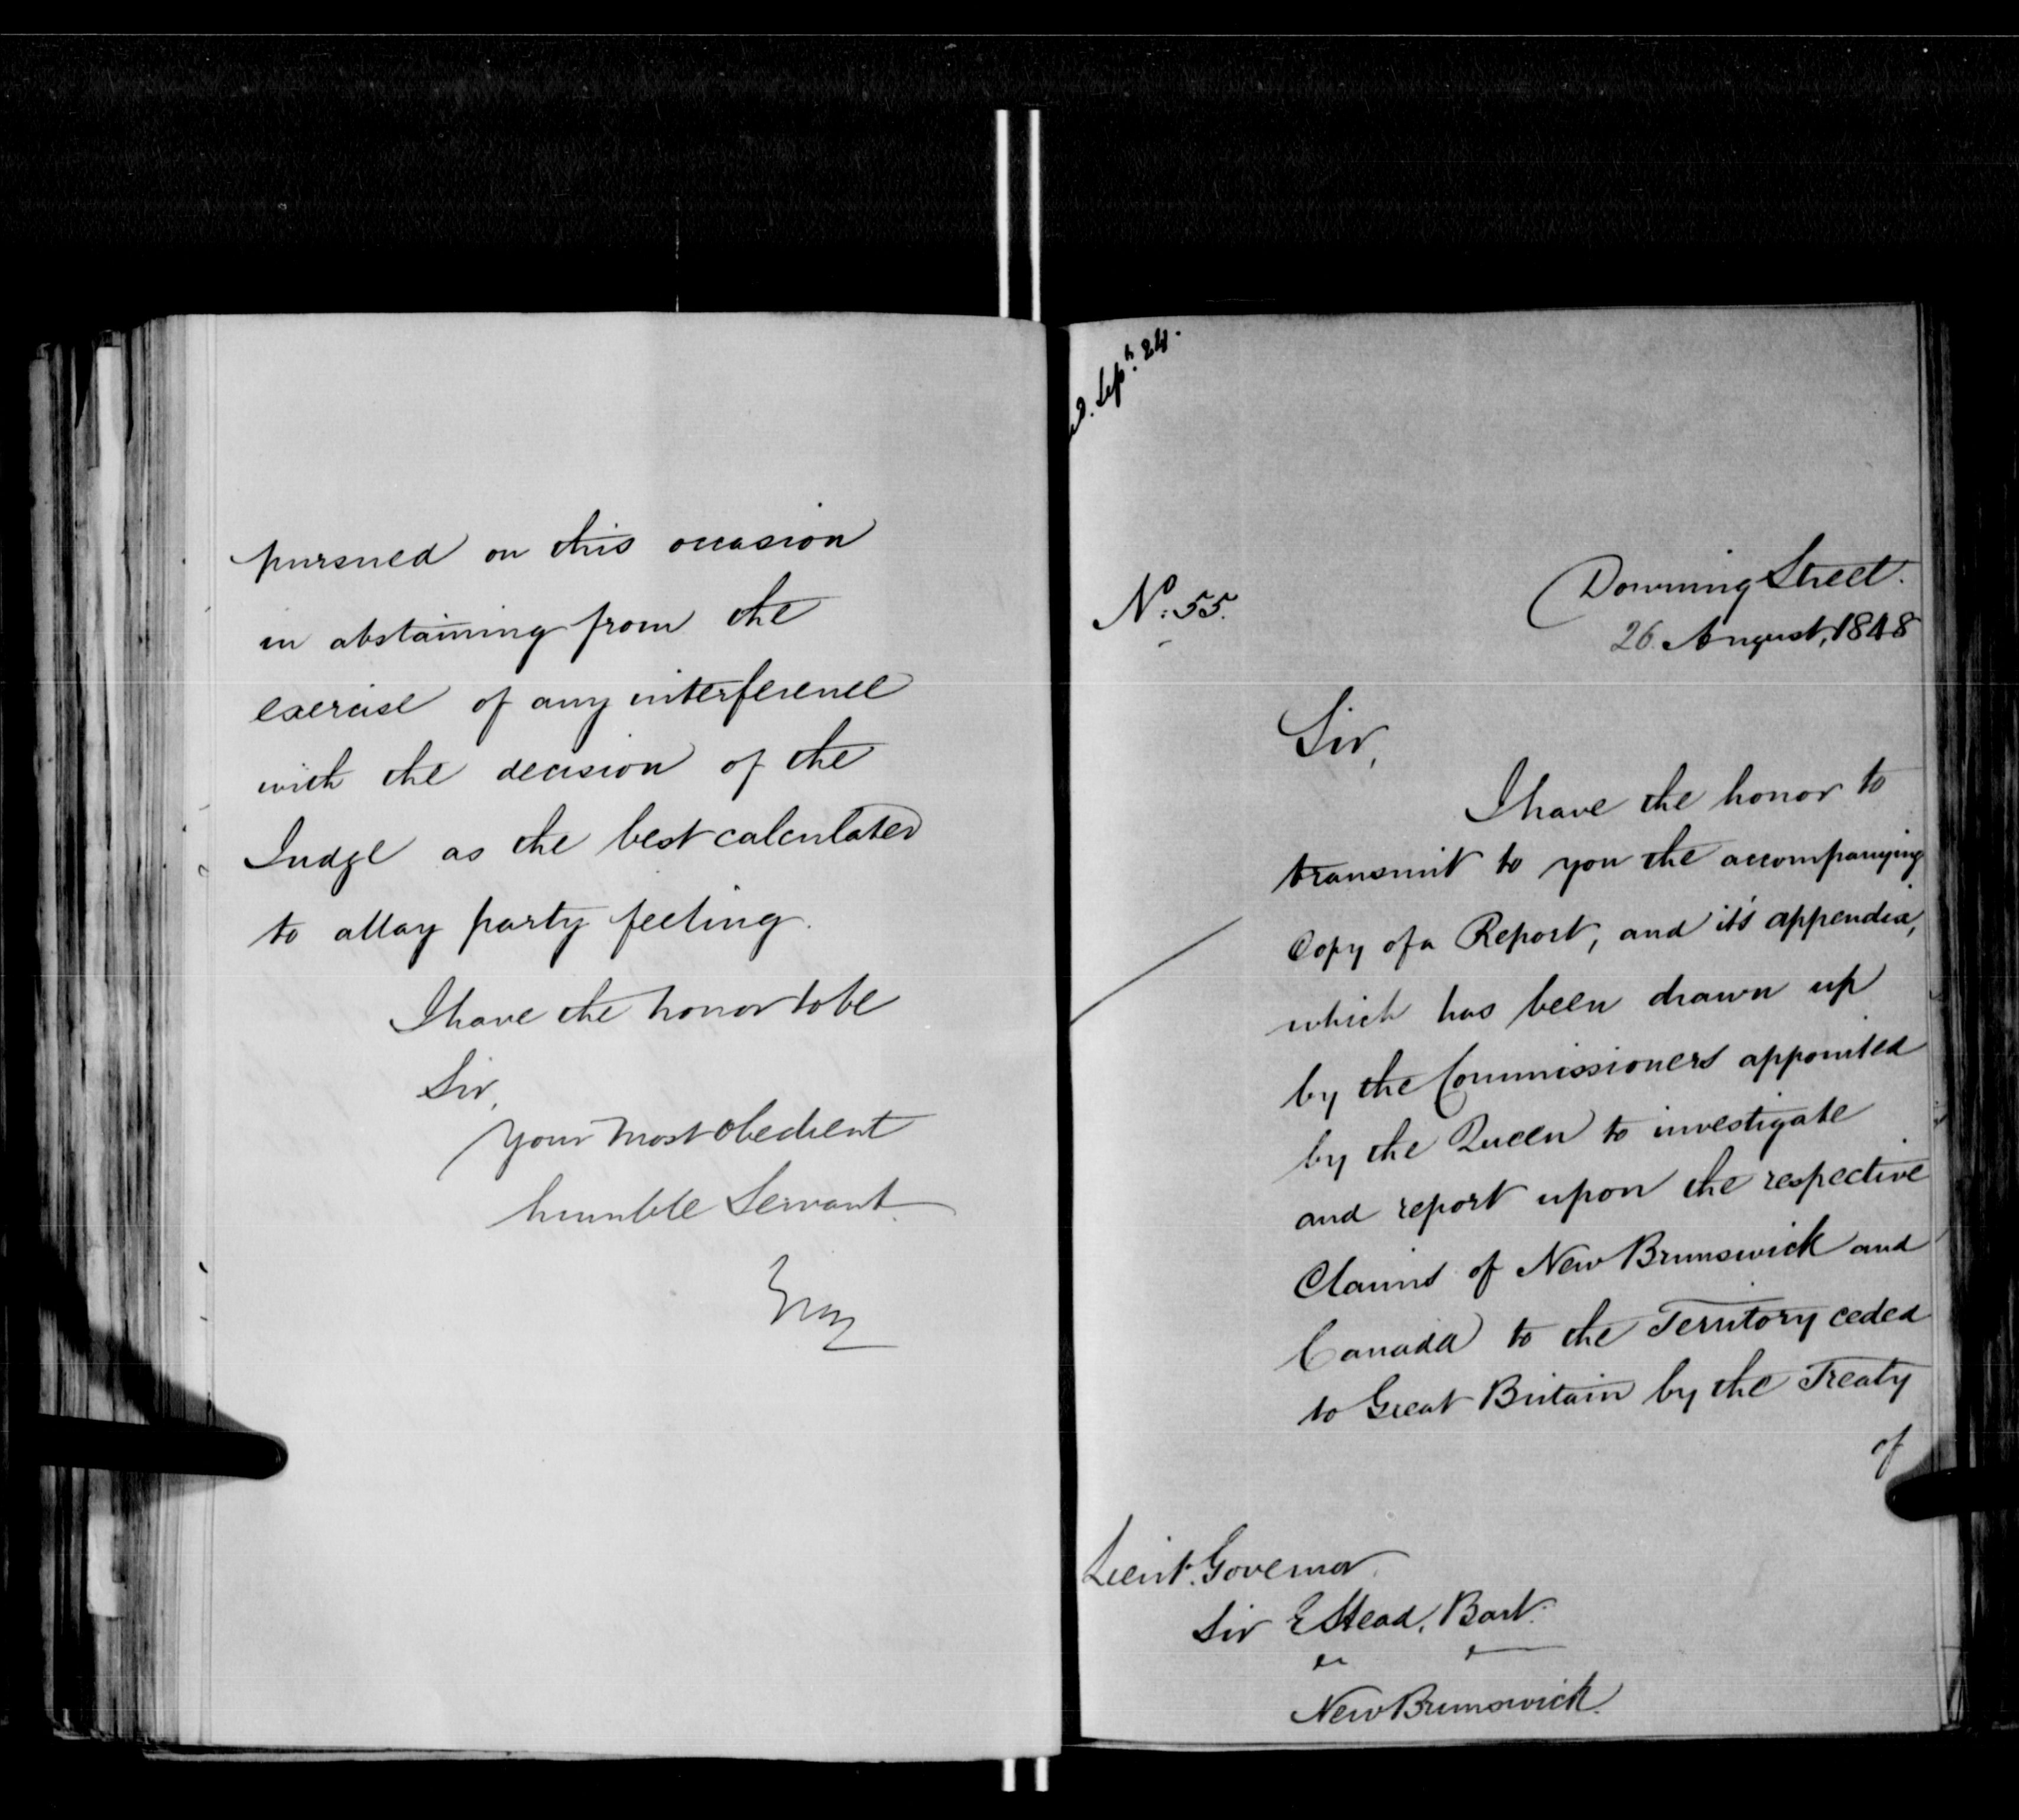 pursued on this occasion
in abstaining from the
exercise of any interference
with the decision of the
Judge as the best calculated
to allay party feeling.
I have the honor to be
Sir,
Your most obedient
humble Servant.
Grey
Sept. 24.
No: 55.
Downing Street.
26. August, 1848
Sir,
I have the honor to
transmit to you the accompanying
Copy of a Report, and it's appendix,
which has been drawn up
by the Commissioners appointed
by the Queen to investigate
and report upon the respective
Claims of New Brunswick and
Canada to the Territory ceded
to Great Britain by the Treaty
of
Lieut. Governor
Sir E Head, Bart.
New Brunswick.